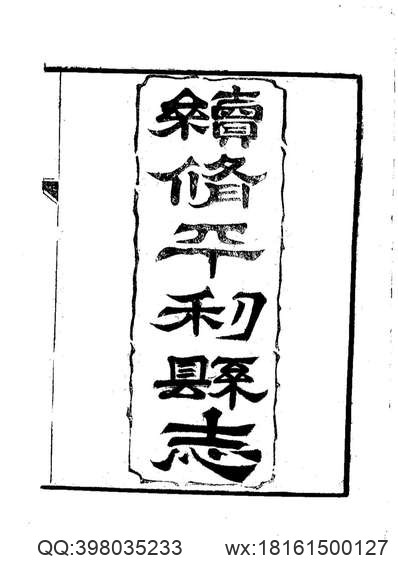 續脩平利縣志
QQ:398035233 wx:18161500127